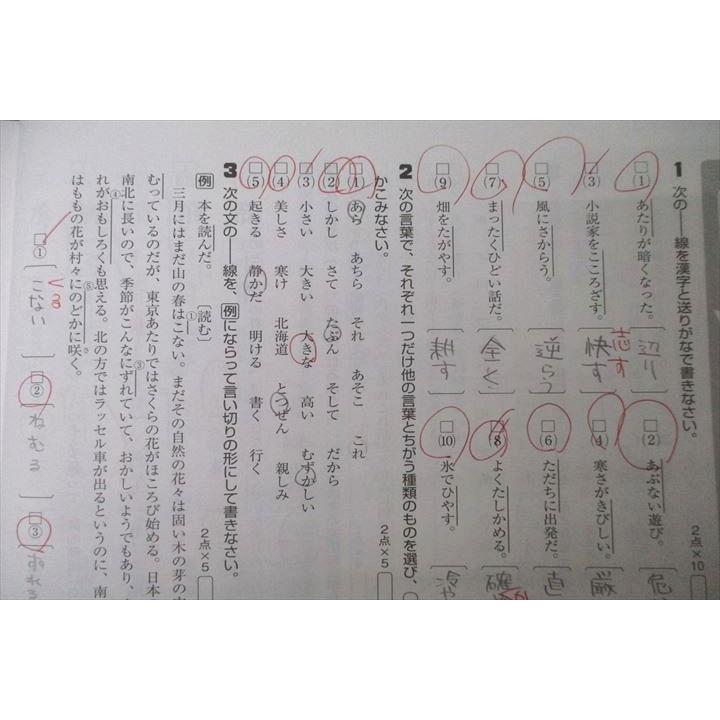 1 次の――線を漢字と送りがなで書きなさい。
2点×10
(1) あたりが暗くなった。
辺り
(2) あぶない遊び。
危
(3) 小説家をこころざす。
快す
志す
(4) 寒さがきびしい。
厳
(5) 風にさからう。
逆らう
(6) ただちに出発だ。
直
(7) まったくひどい話だ。
全く
(8) よくたしかめる。
確
(9) 畑をたがやす。
耕す
(10) 氷でひやす。
冷や
2 次の言葉で、それぞれ一つだけ他の言葉とちがう種類のものを選び、
かこみなさい。
2点×5
(1) あら あちら それ あそこ これ
(2) しかし さて たぶん そして だから
(3) 小さい 大きい 大きな 高い むずかしい
(4) 美しさ 寒け 北海道 とつぜん 親しみ
(5) 起きる 静かだ 明ける 書く 行く
3 次の文の――線を、例にならって言い切りの形にして書きなさい。
2点×5
例 本を読んだ。 〔読む〕
三月にはまだ山の春はこない。まだその自然の花々は固い木の芽の
①
むっているのだが、東京あたりではさくらの花がほころび始める。日本
③
南北に長いので、季節がこんなにずれていて、おかしいようでもあり、
④
れがおもしろくも思える。北の方ではラッセル車が出るというのに、南
はももの花が村々にのどかに咲く。
⑤
さ
① こない
くる
② ねむる
③ おれる